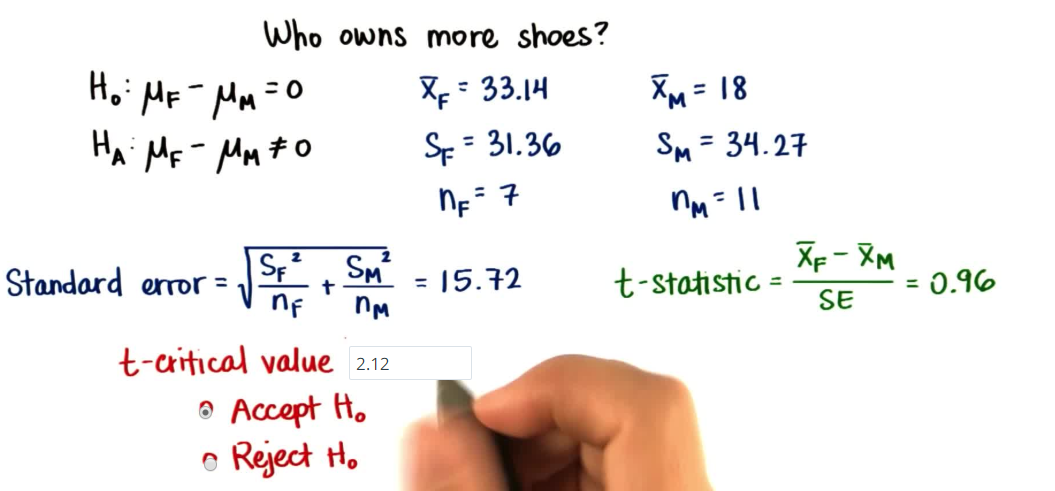 Who owns more shoes?
H₀: μF - μM = 0
x̄F = 33.14
x̄M = 18
HA: μF - μM ≠ 0
SF = 31.36
SM = 34.27
nF = 7
nM = 11
Standard error = √(SF²/nF + SM²/nM) = 15.72
t-statistic = (x̄F - x̄M)/SE = 0.96
t-critical value 2.12
Accept H₀
Reject H₀